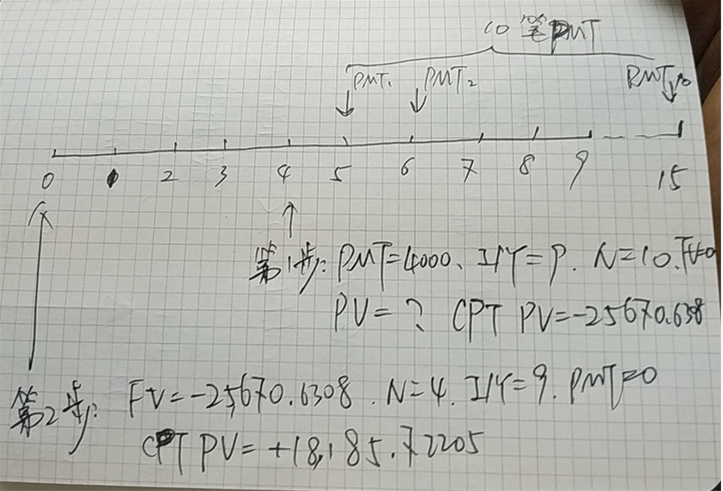 10 笔PMT
PMT₁ PMT₂ PMT₁₀
0 1 2 3 4 5 6 7 8 9 15
第1步: PMT=4000、I/Y=9. N=10. FV=0
PV=? CPT PV=-25670.6308
第2步: FV=-25,670.6308. N=4. I/Y=9. PMT=0
CPT PV=+18,185.72205